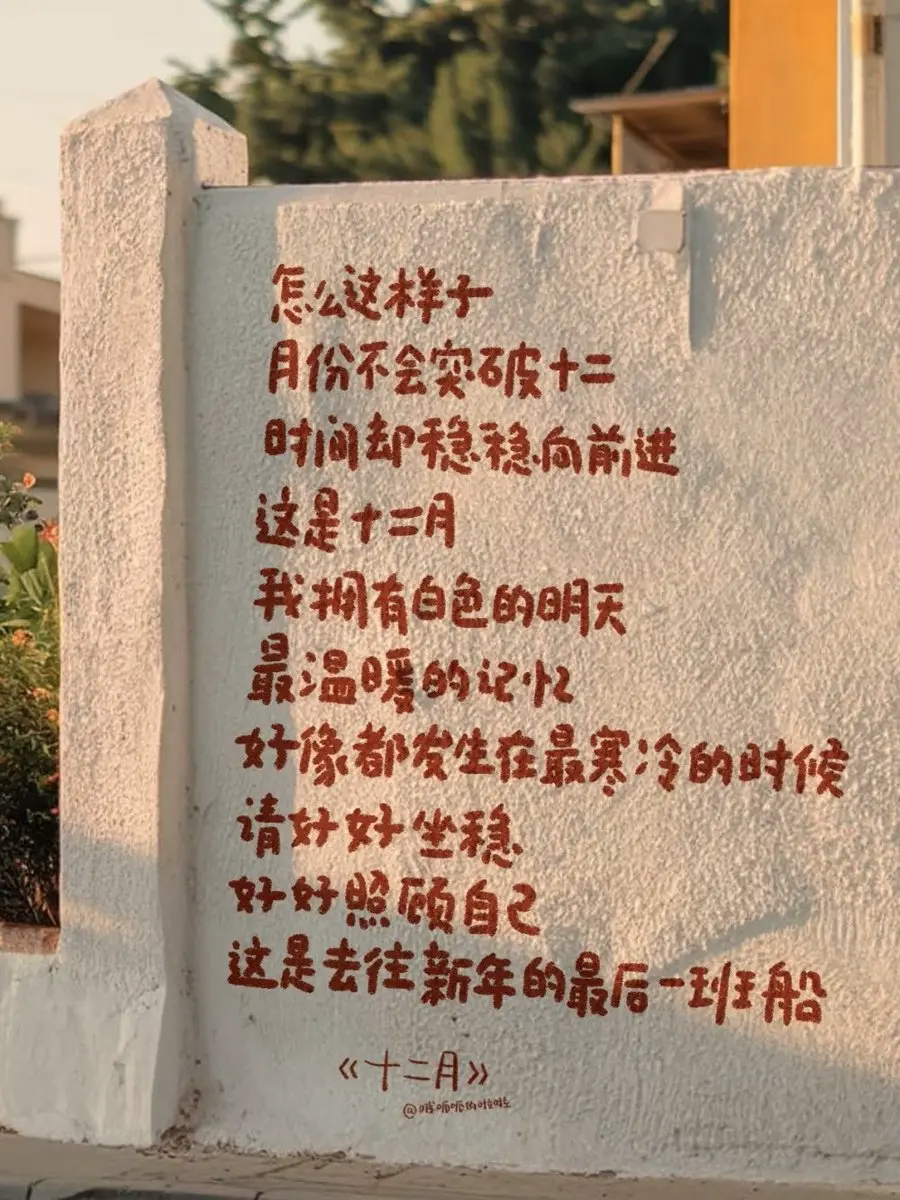 怎么这样子
月份不会突破十二
时间却稳稳向前进
这是十二月
我拥有白色的明天
最温暖的记忆
好像都发生在最寒冷的时候
请好好坐稳
好好照顾自己
这是去往新年的最后一班船
《十二月》